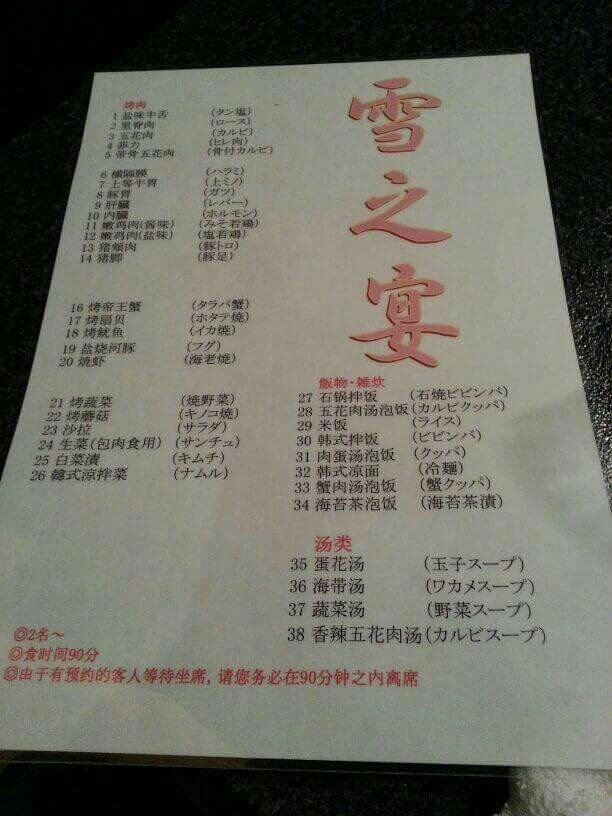 雪之宴
烤肉
1 盐味牛舌 (タン塩)
2 里脊肉 (ロース)
3 五花肉 (カルビ)
4 菲力 (ヒレ肉)
5 带骨五花肉 (骨付カルビ)
6 横隔膜 (ハラミ)
7 上等牛胃 (上ミノ)
8 豚胃 (ガツ)
9 肝臓 (レバー)
10 内臓 (ホルモン)
11 嫩鸡肉(酱味) (みそ若鶏)
12 嫩鸡肉(盐味) (塩若鶏)
13 猪颊肉 (豚トロ)
14 猪脚 (豚足)
16 烤帝王蟹 (タラバ蟹)
17 烤扇贝 (ホタテ焼)
18 烤鱿鱼 (イカ焼)
19 盐烧河豚 (フグ)
20 烧虾 (海老焼)
21 烤蔬菜 (焼野菜)
22 烤蘑菇 (キノコ焼)
23 沙拉 (サラダ)
24 生菜(包肉食用) (サンチュ)
25 白菜漬 (キムチ)
26 韓式涼拌菜 (ナムル)
飯物・雑炊
27 石锅拌饭 (石焼ビビンバ)
28 五花肉汤泡饭 (カルビクッパ)
29 米饭 (ライス)
30 韩式拌饭 (ビビンバ)
31 肉蛋汤泡饭 (クッパ)
32 韩式凉面 (冷麺)
33 蟹肉汤泡饭 (蟹クッパ)
34 海苔茶泡饭 (海苔茶漬)
汤类
35 蛋花汤 (玉子スープ)
36 海带汤 (ワカメスープ)
37 蔬菜汤 (野菜スープ)
38 香辣五花肉汤 (カルビスープ)
◎2名～
◎食时间90分
◎由于有预约的客人等待坐席, 请您务必在90分钟之内离席